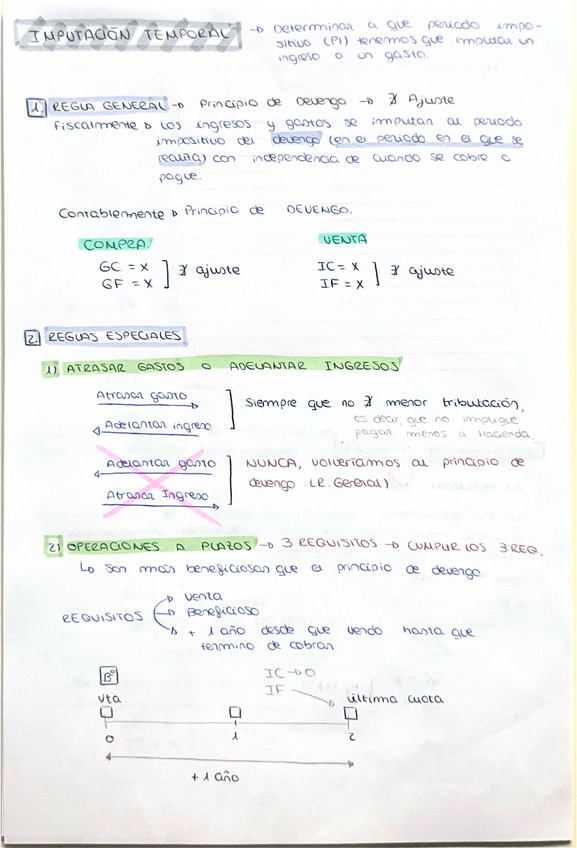 IMPUTACIÓN TEMPORAL → Determinar a que periodo impo-
sitivo (PI) tenemos que imputar un
ingreso o un gasto.
1. REGLA GENERAL → Principio de Devengo → ∄ Ajuste
Fiscalmente ▷ Los ingresos y gastos se imputan al periodo
impositivo del devengo (en el periodo en el que se
realiza) con independencia de cuando se cobre o
pague.
Contablemente ▷ Principio de DEVENGO.
COMPRA VENTA
GC = X ] ∄ ajuste IC = X ] ∄ ajuste
GF = X IF = X
2. REGLAS ESPECIALES
1) ATRASAR GASTOS O ADELANTAR INGRESOS
Atrasar gasto
Adelantar ingreso
Siempre que no ∄ menor tributación,
es decir, que no implique
pagar menos a Hacienda.
Adelantar gasto
Atrasar Ingreso
NUNCA, volveríamos al principio de
devengo (R. General)
2) OPERACIONES A PLAZOS → 3 REQUISITOS → CUMPLIR LOS 3 REQ.
↳ Son más beneficiosas que el principio de devengo.
REQUISITOS
→ Venta
→ Beneficioso
→ + 1 año desde que vendo hasta que
termino de cobrar
Bº IC → 0
vta IF → última cuota
0 1 2
+ 1 año